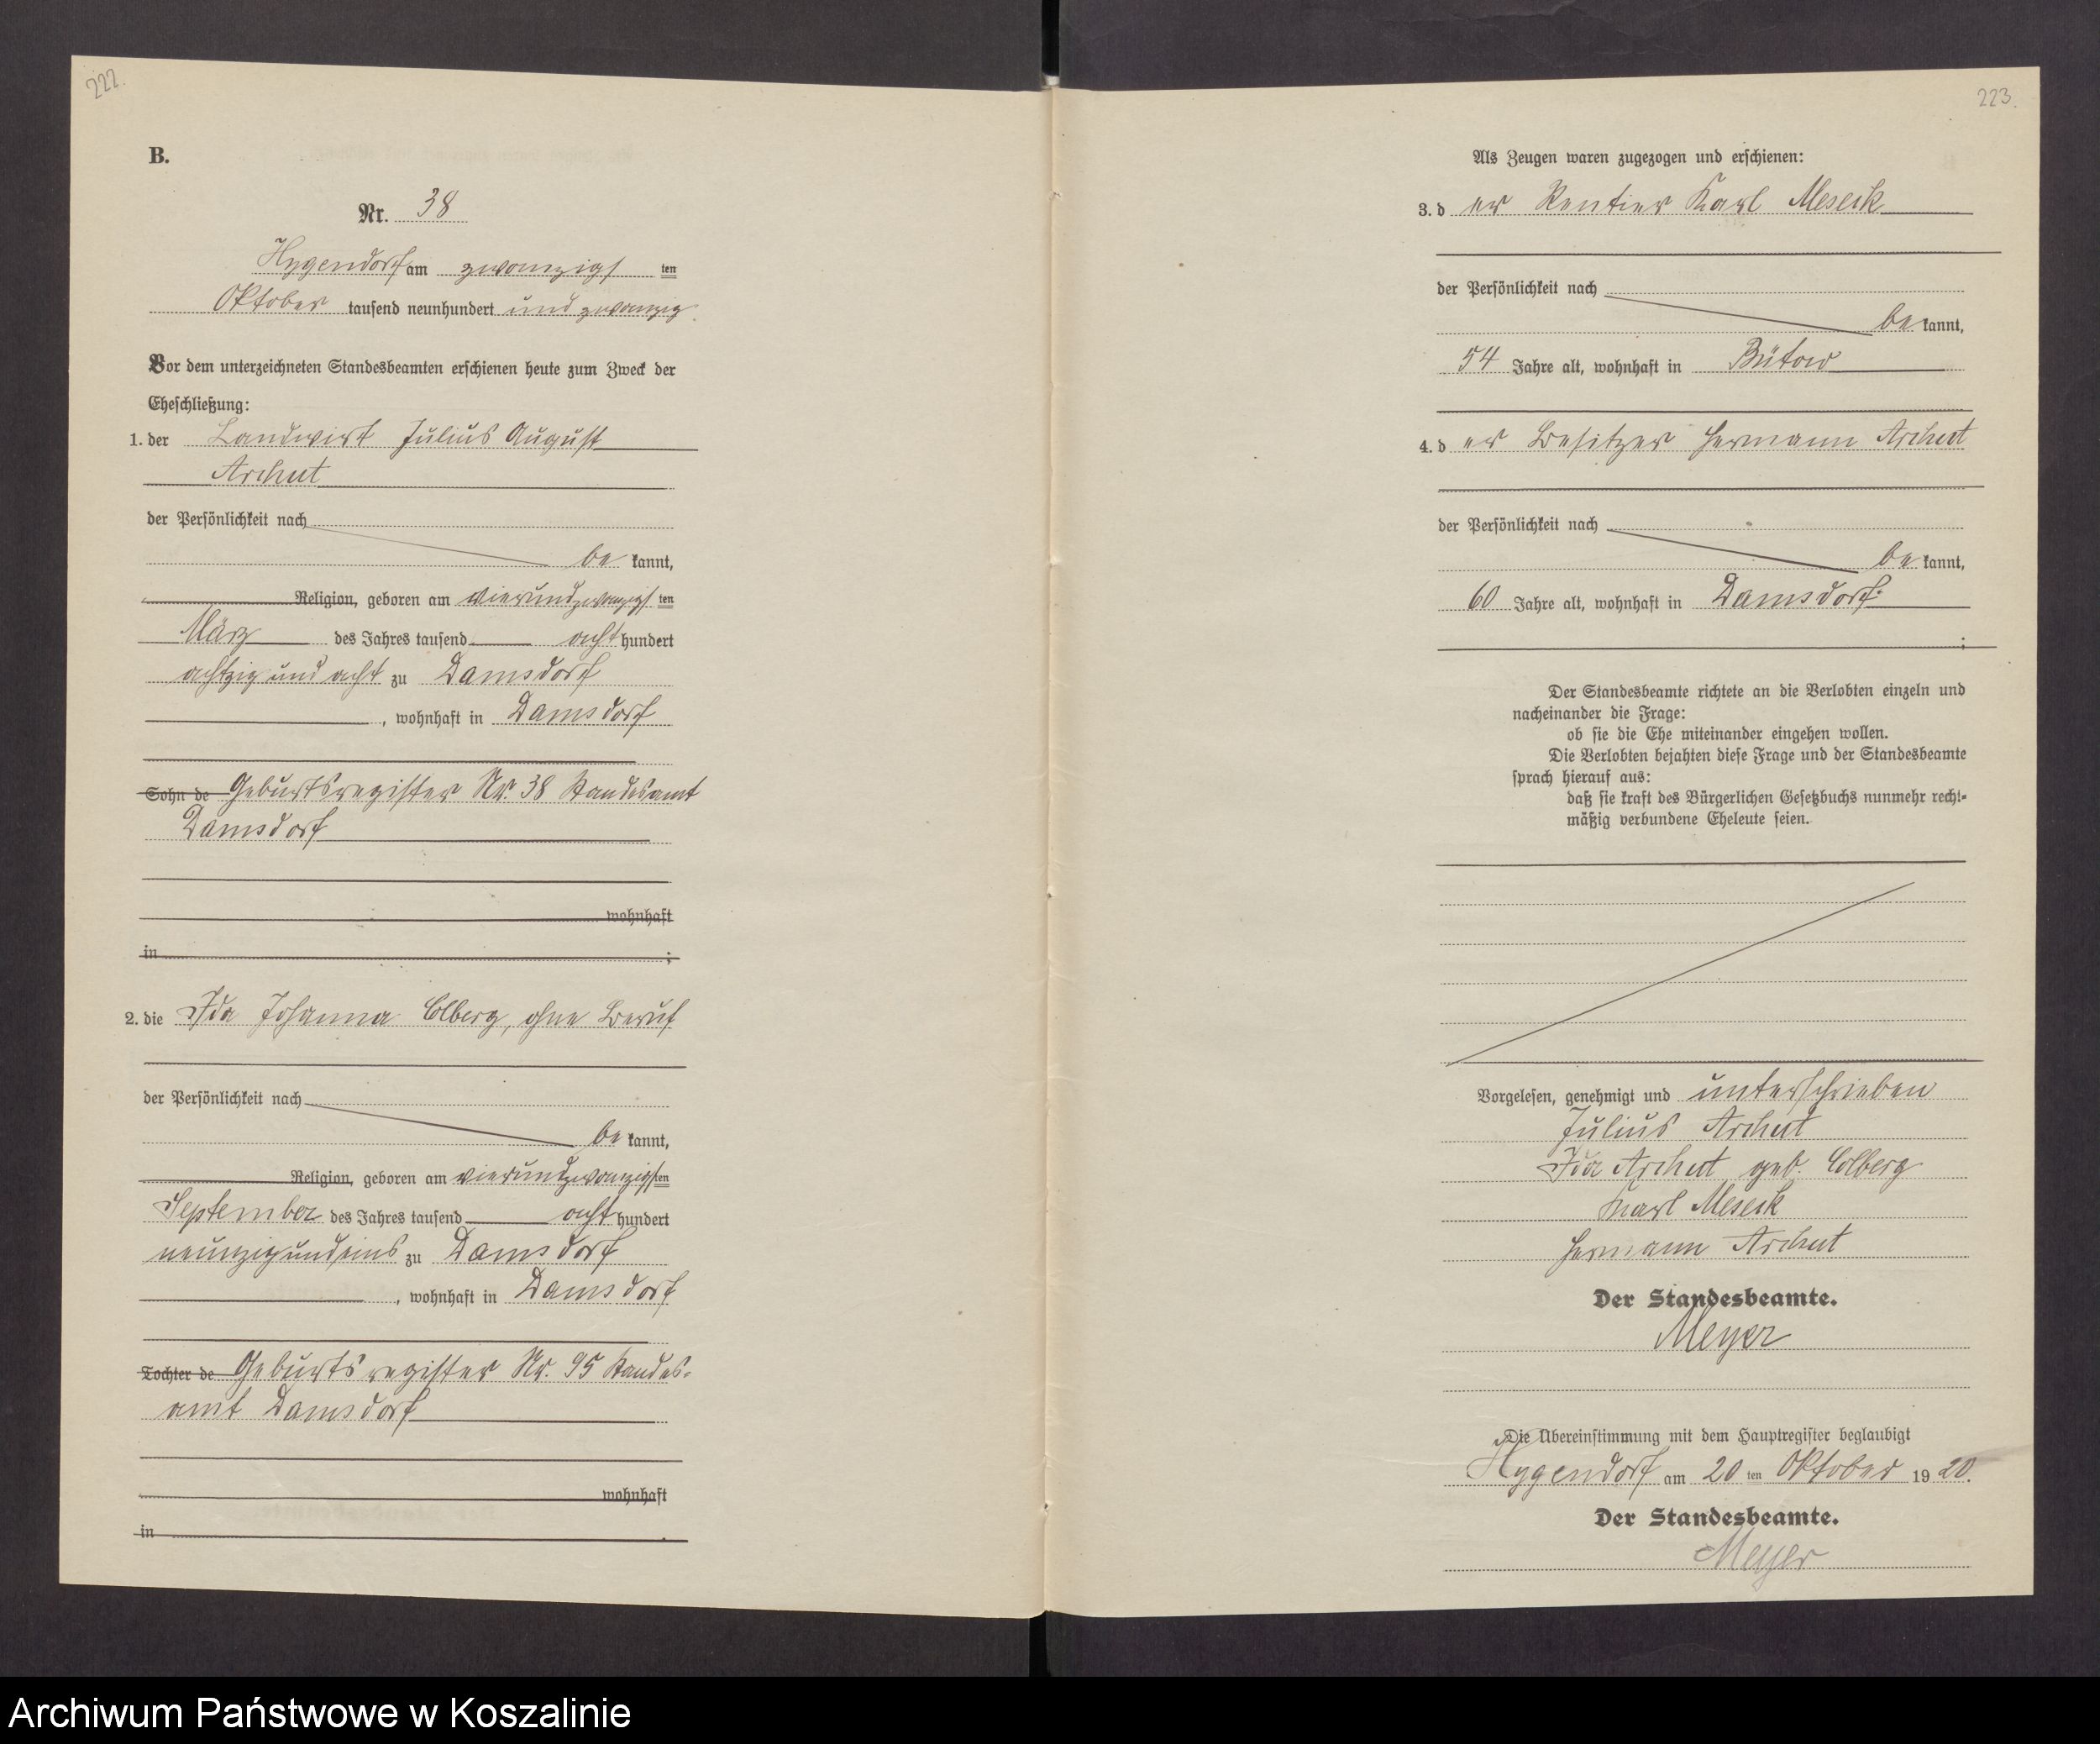 222.
B.
Nr. 38
Hygendorf am zwanzigsten
Oktober tausend neunhundert und zwanzig.
Vor dem unterzeichneten Standesbeamten erschienen heute zum Zweck der
Eheschließung:
1. der Landwirt Julius August
Archut
der Persönlichkeit nach
be kannt,
Religion, geboren am vierundzwanzigsten
März des Jahres tausend acht hundert
achtzig und acht zu Damsdorf
, wohnhaft in Damsdorf
Sohn de Geburtsregister Nr. 38 Standesamt
Damsdorf
wohnhaft
in ;
2. die Ida Johanna Colberg, ohne Beruf
der Persönlichkeit nach
be kannt,
Religion, geboren am vierundzwanzigsten
September des Jahres tausend acht hundert
neunzig und eins zu Damsdorf
, wohnhaft in Damsdorf
Tochter de Geburtsregister Nr. 95 Standes-
amt Damsdorf
wohnhaft
in .
223.
Als Zeugen waren zugezogen und erschienen:
3. der Rentier Karl Meseck
der Persönlichkeit nach
be kannt,
54 Jahre alt, wohnhaft in Bütow
4. der Besitzer Hermann Archut
der Persönlichkeit nach
be kannt,
60 Jahre alt, wohnhaft in Damsdorf.
;
Der Standesbeamte richtete an die Verlobten einzeln und
nacheinander die Frage:
ob sie die Ehe miteinander eingehen wollen.
Die Verlobten bejahten diese Frage und der Standesbeamte
sprach hierauf aus:
daß sie kraft des Bürgerlichen Gesetzbuchs nunmehr recht-
mäßig verbundene Eheleute seien.
Vorgelesen, genehmigt und unterschrieben
Julius Archut
Ida Archut geb. Colberg
Karl Meseck
Hermann Archut
Der Standesbeamte.
Meyer
Die Übereinstimmung mit dem Hauptregister beglaubigt
Hygendorf am 20 ten Oktober 19 20.
Der Standesbeamte.
Meyer
Archiwum Państwowe w Koszalinie